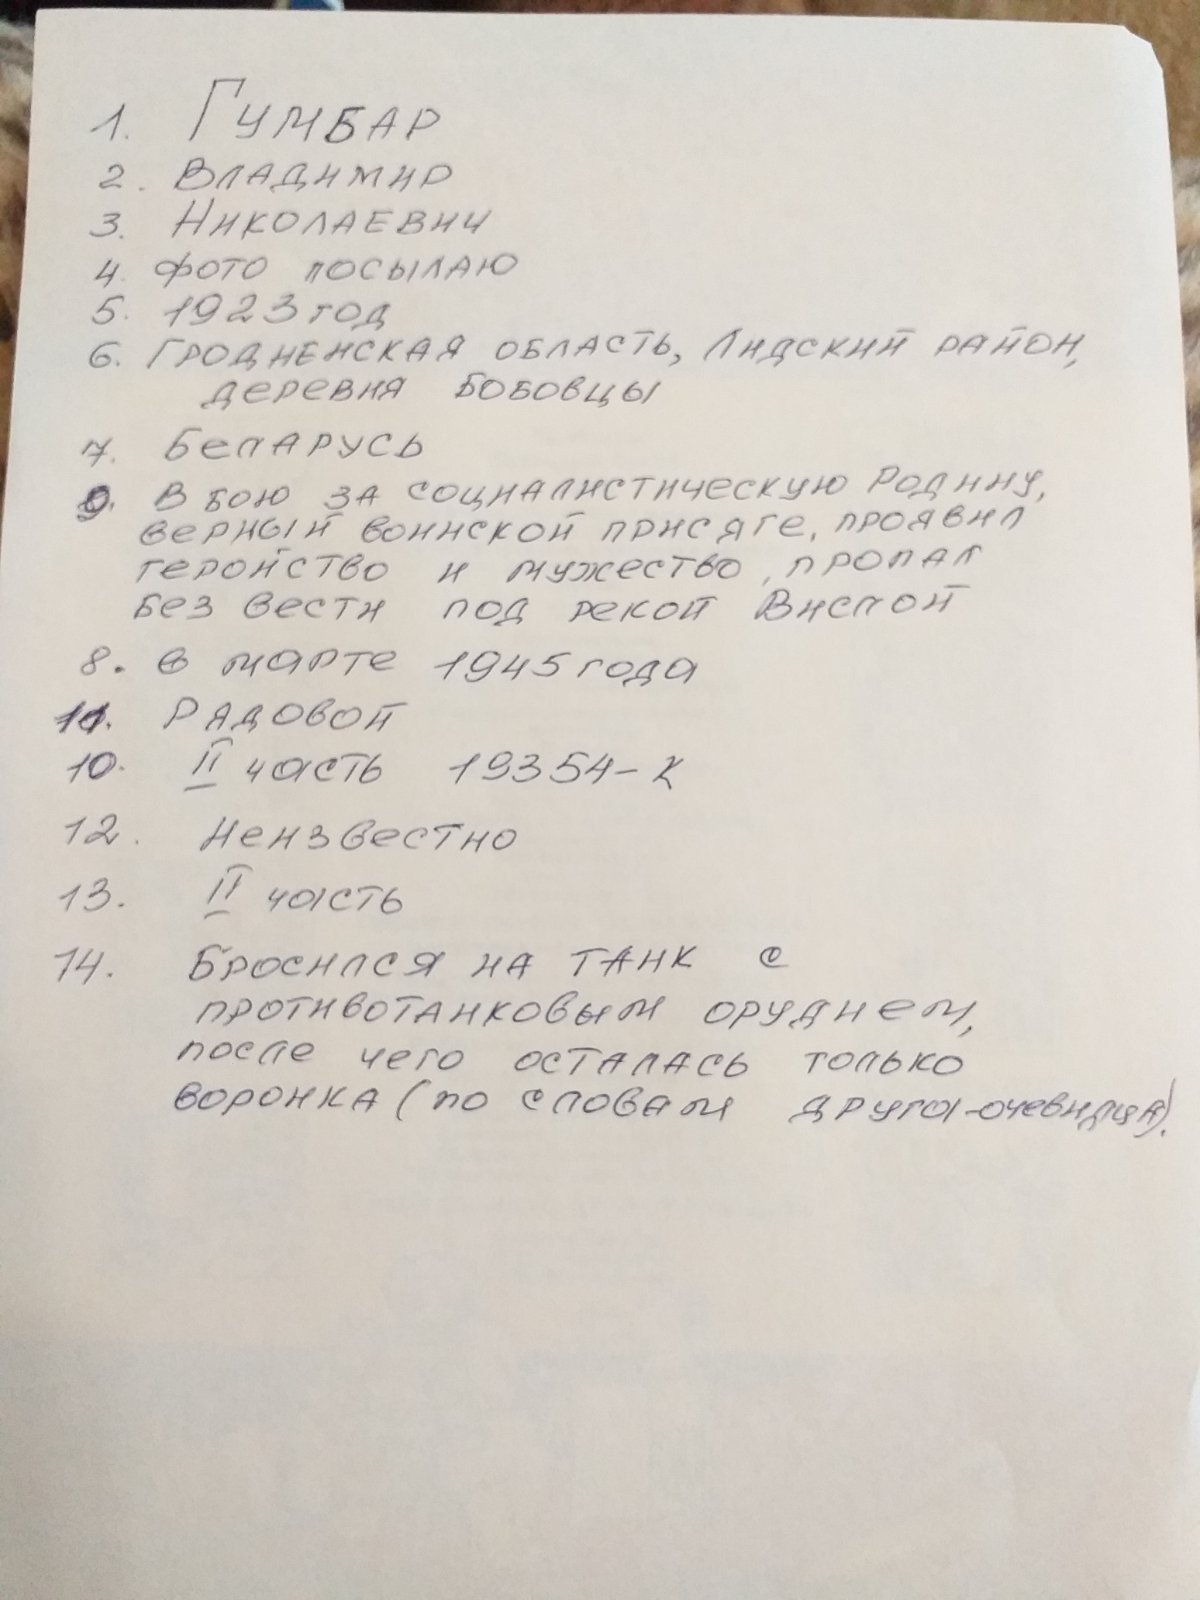 1. Гумбар
2. Владимир
3. Николаевич
4. Фото посылаю
5. 1923 год
6. Гродненская область, Лидский район,
деревня Бобовцы
7. Беларусь
9. В бою за социалистическую Родину,
верный воинской присяге, проявил
геройство и мужество, пропал
без вести под рекой Вислой
8. в марте 1945 года
11. Рядовой
10. II часть 19354-К
12. Неизвестно
13. II часть
14. Бросился на танк с
противотанковым орудием,
после чего осталась только
воронка (по словам друга-очевидца).